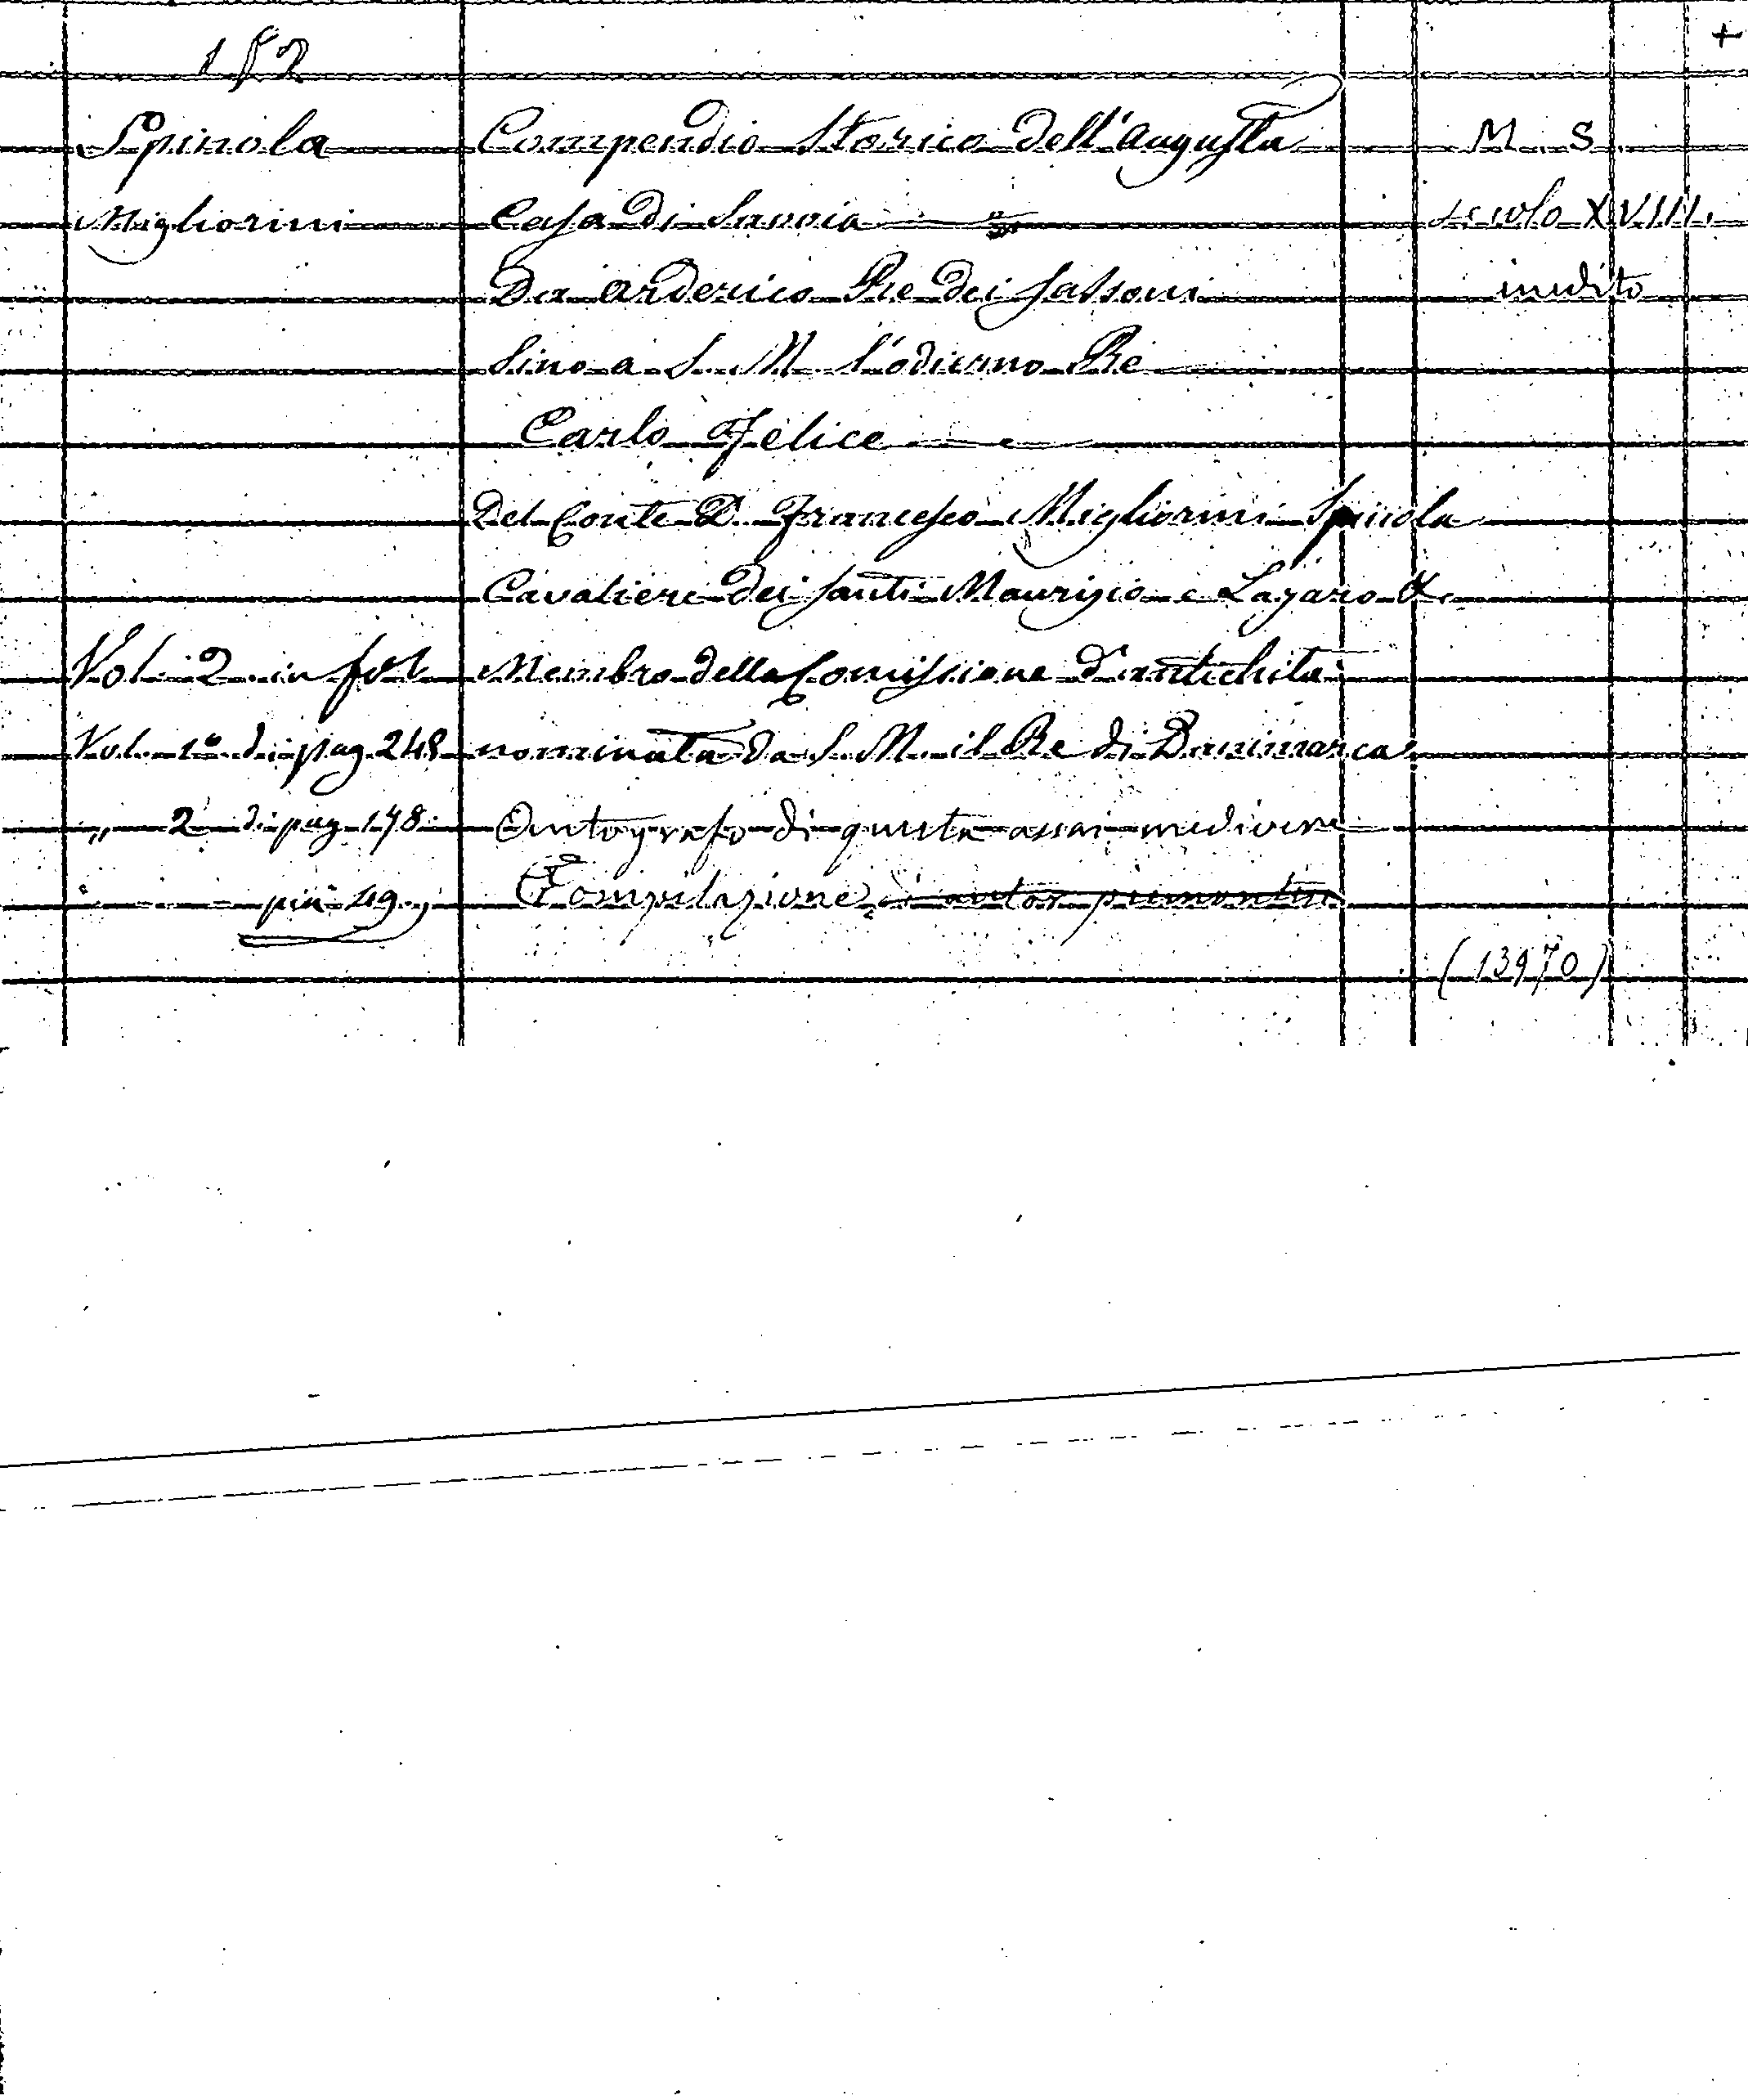 +
152
Spinola Compendio Storico dell'Augusta M. S.
Migliorini Casa di Savoia secolo XVIII.
Da Arderico Re dei Sassoni inedito
Sino a S. M. l'odierno Re
Carlo Felice
Del Conte D. Francesco Migliorini Spinola
Cavaliere dei Santi Maurizio e Lazaro &.
Vol. 2 in fol. Membro della Comissione d'antichità
Vol. 1º di pag 248 nominata da S. M. il Re di Danimarca
" 2º di pag 178 Autografo di questa assai mediocre
più 49 Compilazione autor piemontese
(13970)